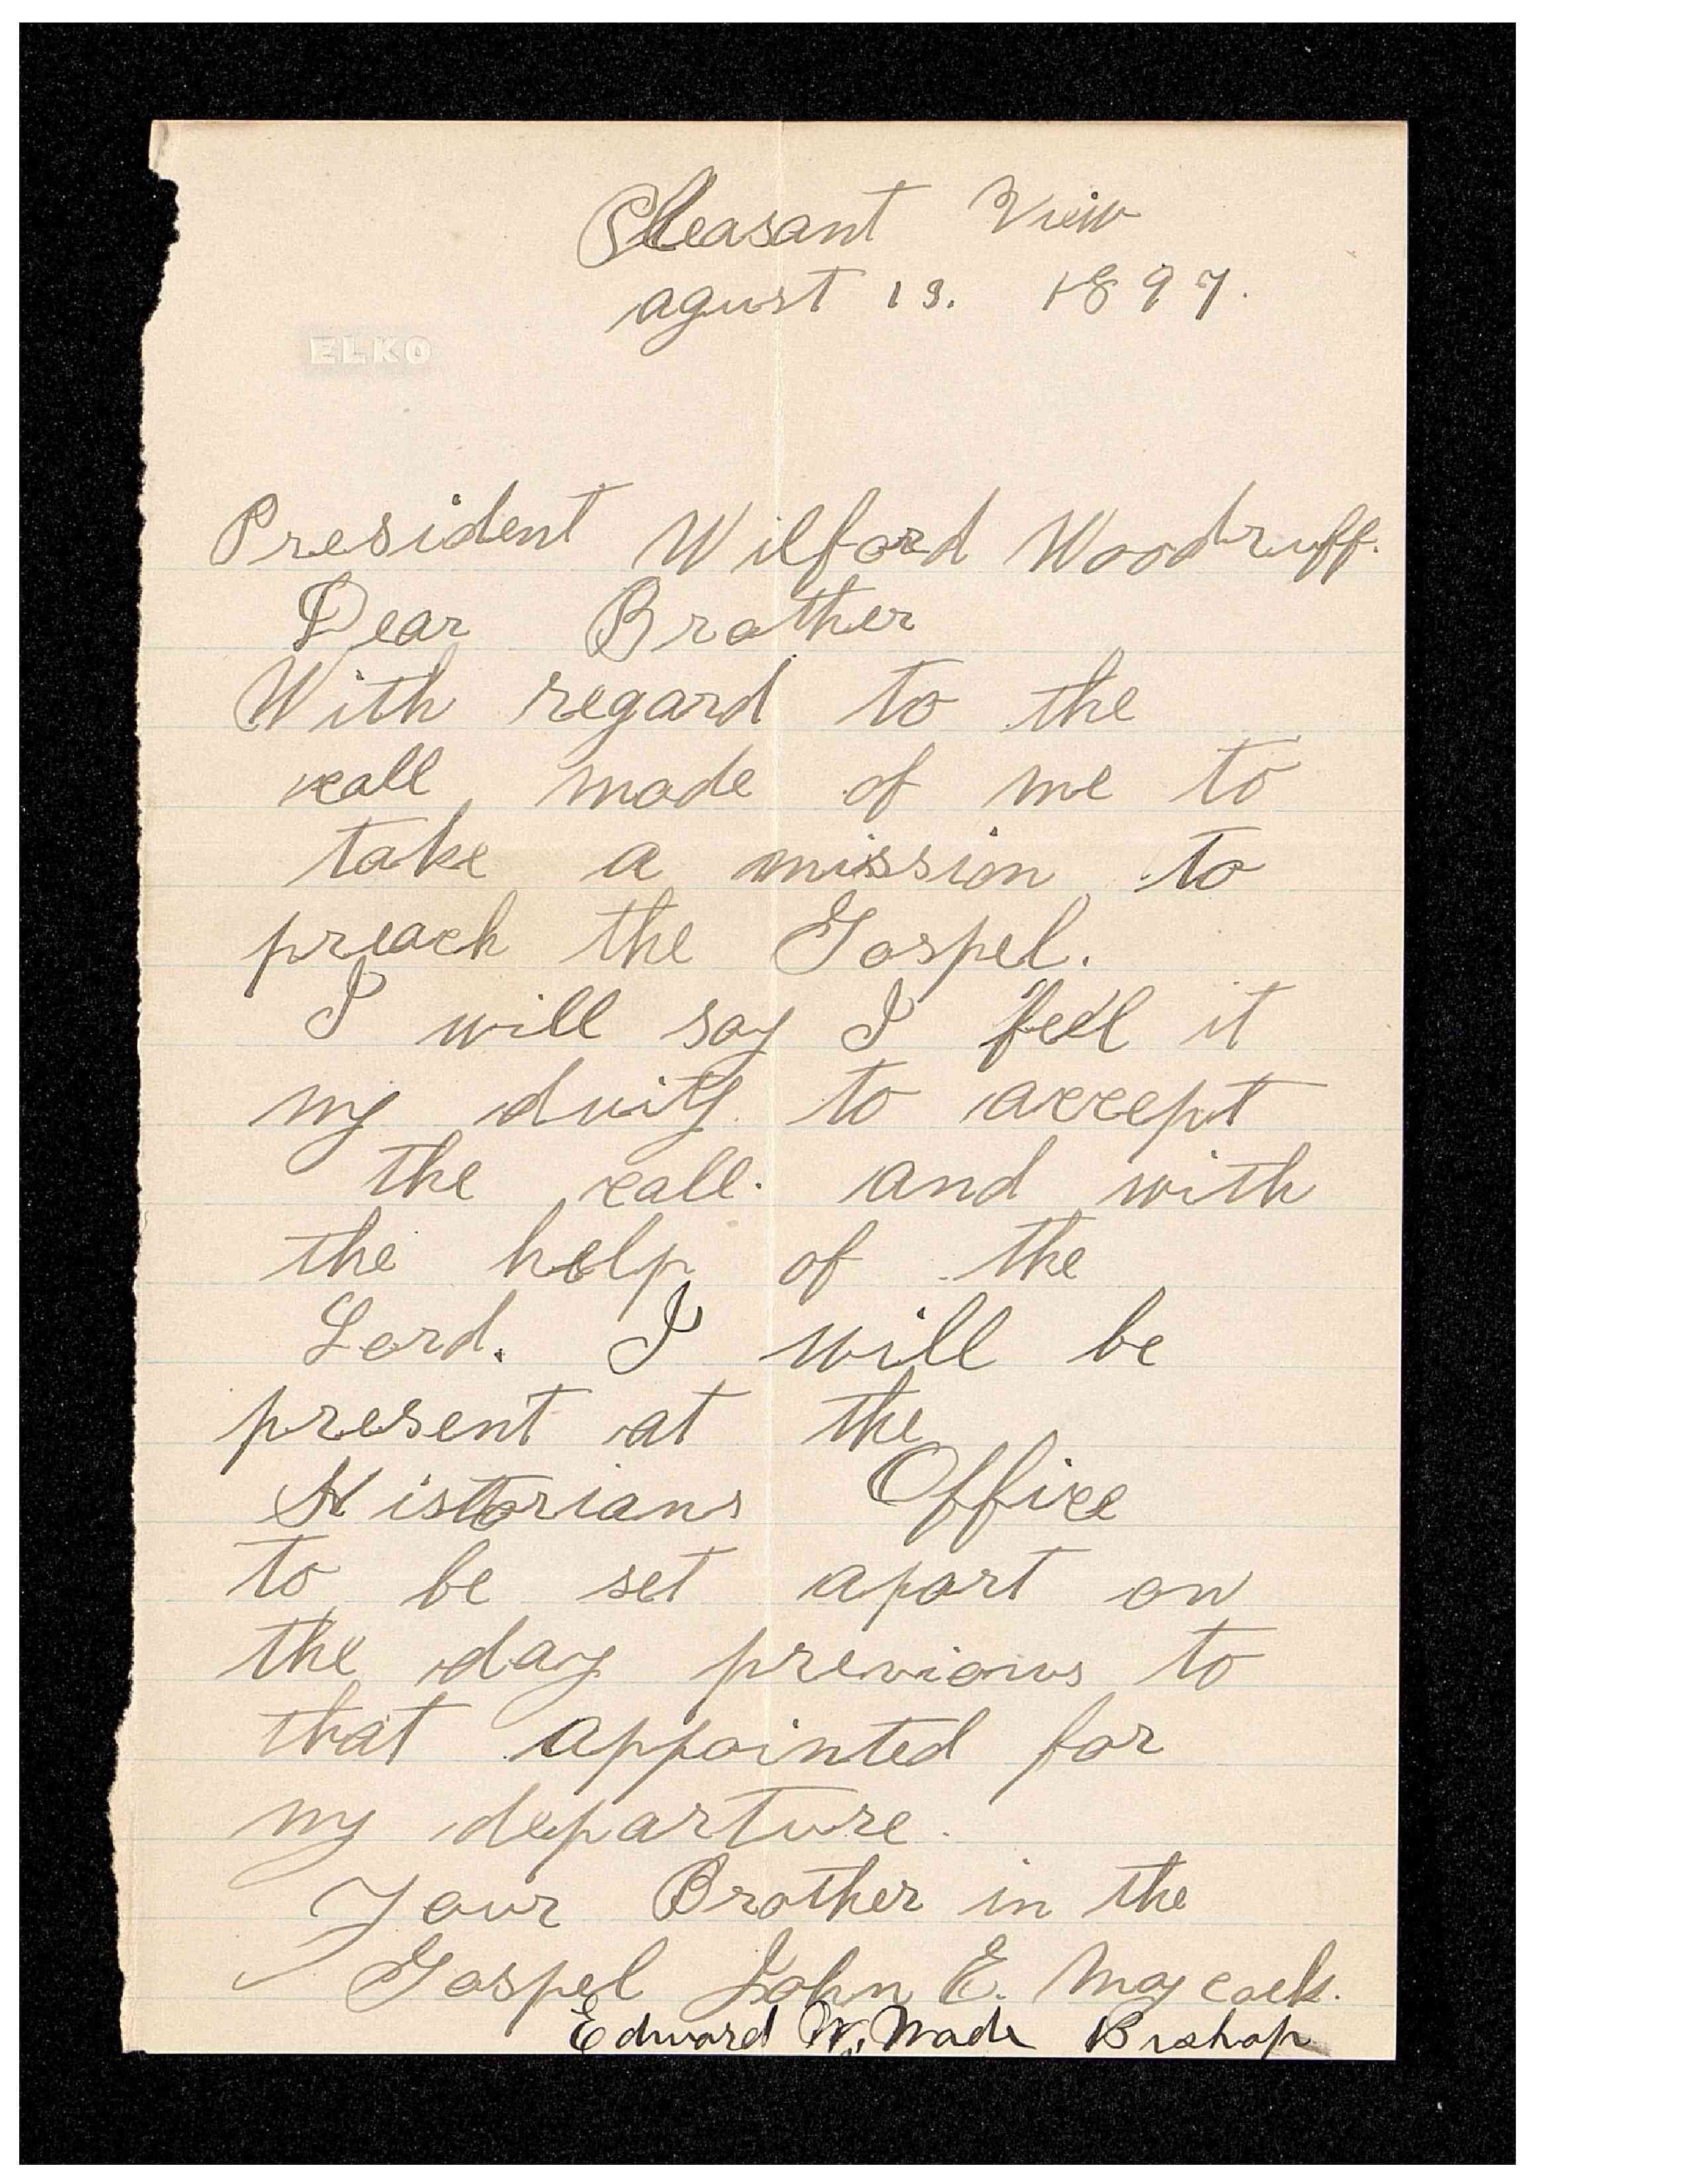 Pleasant View
agust 13. 1897.
ELKO
President Wilford Woodruff.
Dear Brother
With regard to the
call made of me to
take a mission to
preach the Gospel.
I will say I feel it
my duity to accept
the call. and with
the help of the
Lord. I will be
present at the
Historians Office
to be set apart on
the day previous to
that appointed for
my departure.
Your Brother in the
Gospel John E. Maycock.
Edward W. Wade Bishop